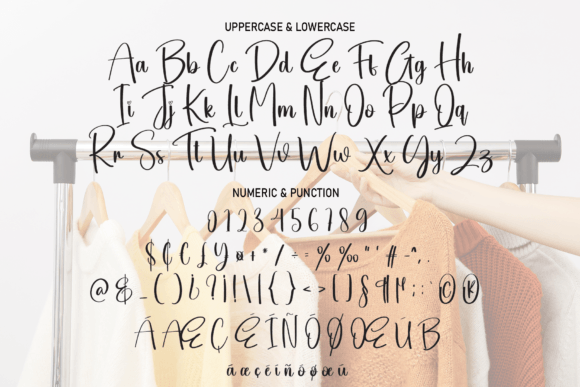 UPPERCASE & LOWERCASE
Aa Bb Cc Dd Ee Ff Gg Hh
Ii Jj Kk Ll Mm Nn Oo Pp Qq
Rr Ss Tt Uu Vv Ww Xx Yy Zz
NUMERIC & PUNCTION
0 1 2 3 4 5 6 7 8 9
$ ₵ £ Y ¤ + * / ÷ = % ‰ " ' # - ^ , .
@ & _ ( ) ¿ ? ¡ ! | \ | { } < > ( ) § ¶ ¦ : ; © ®
Á Æ Ç É Í Ñ Ó Ø Œ Ú B
á æ ç é í ñ ó ø œ ú